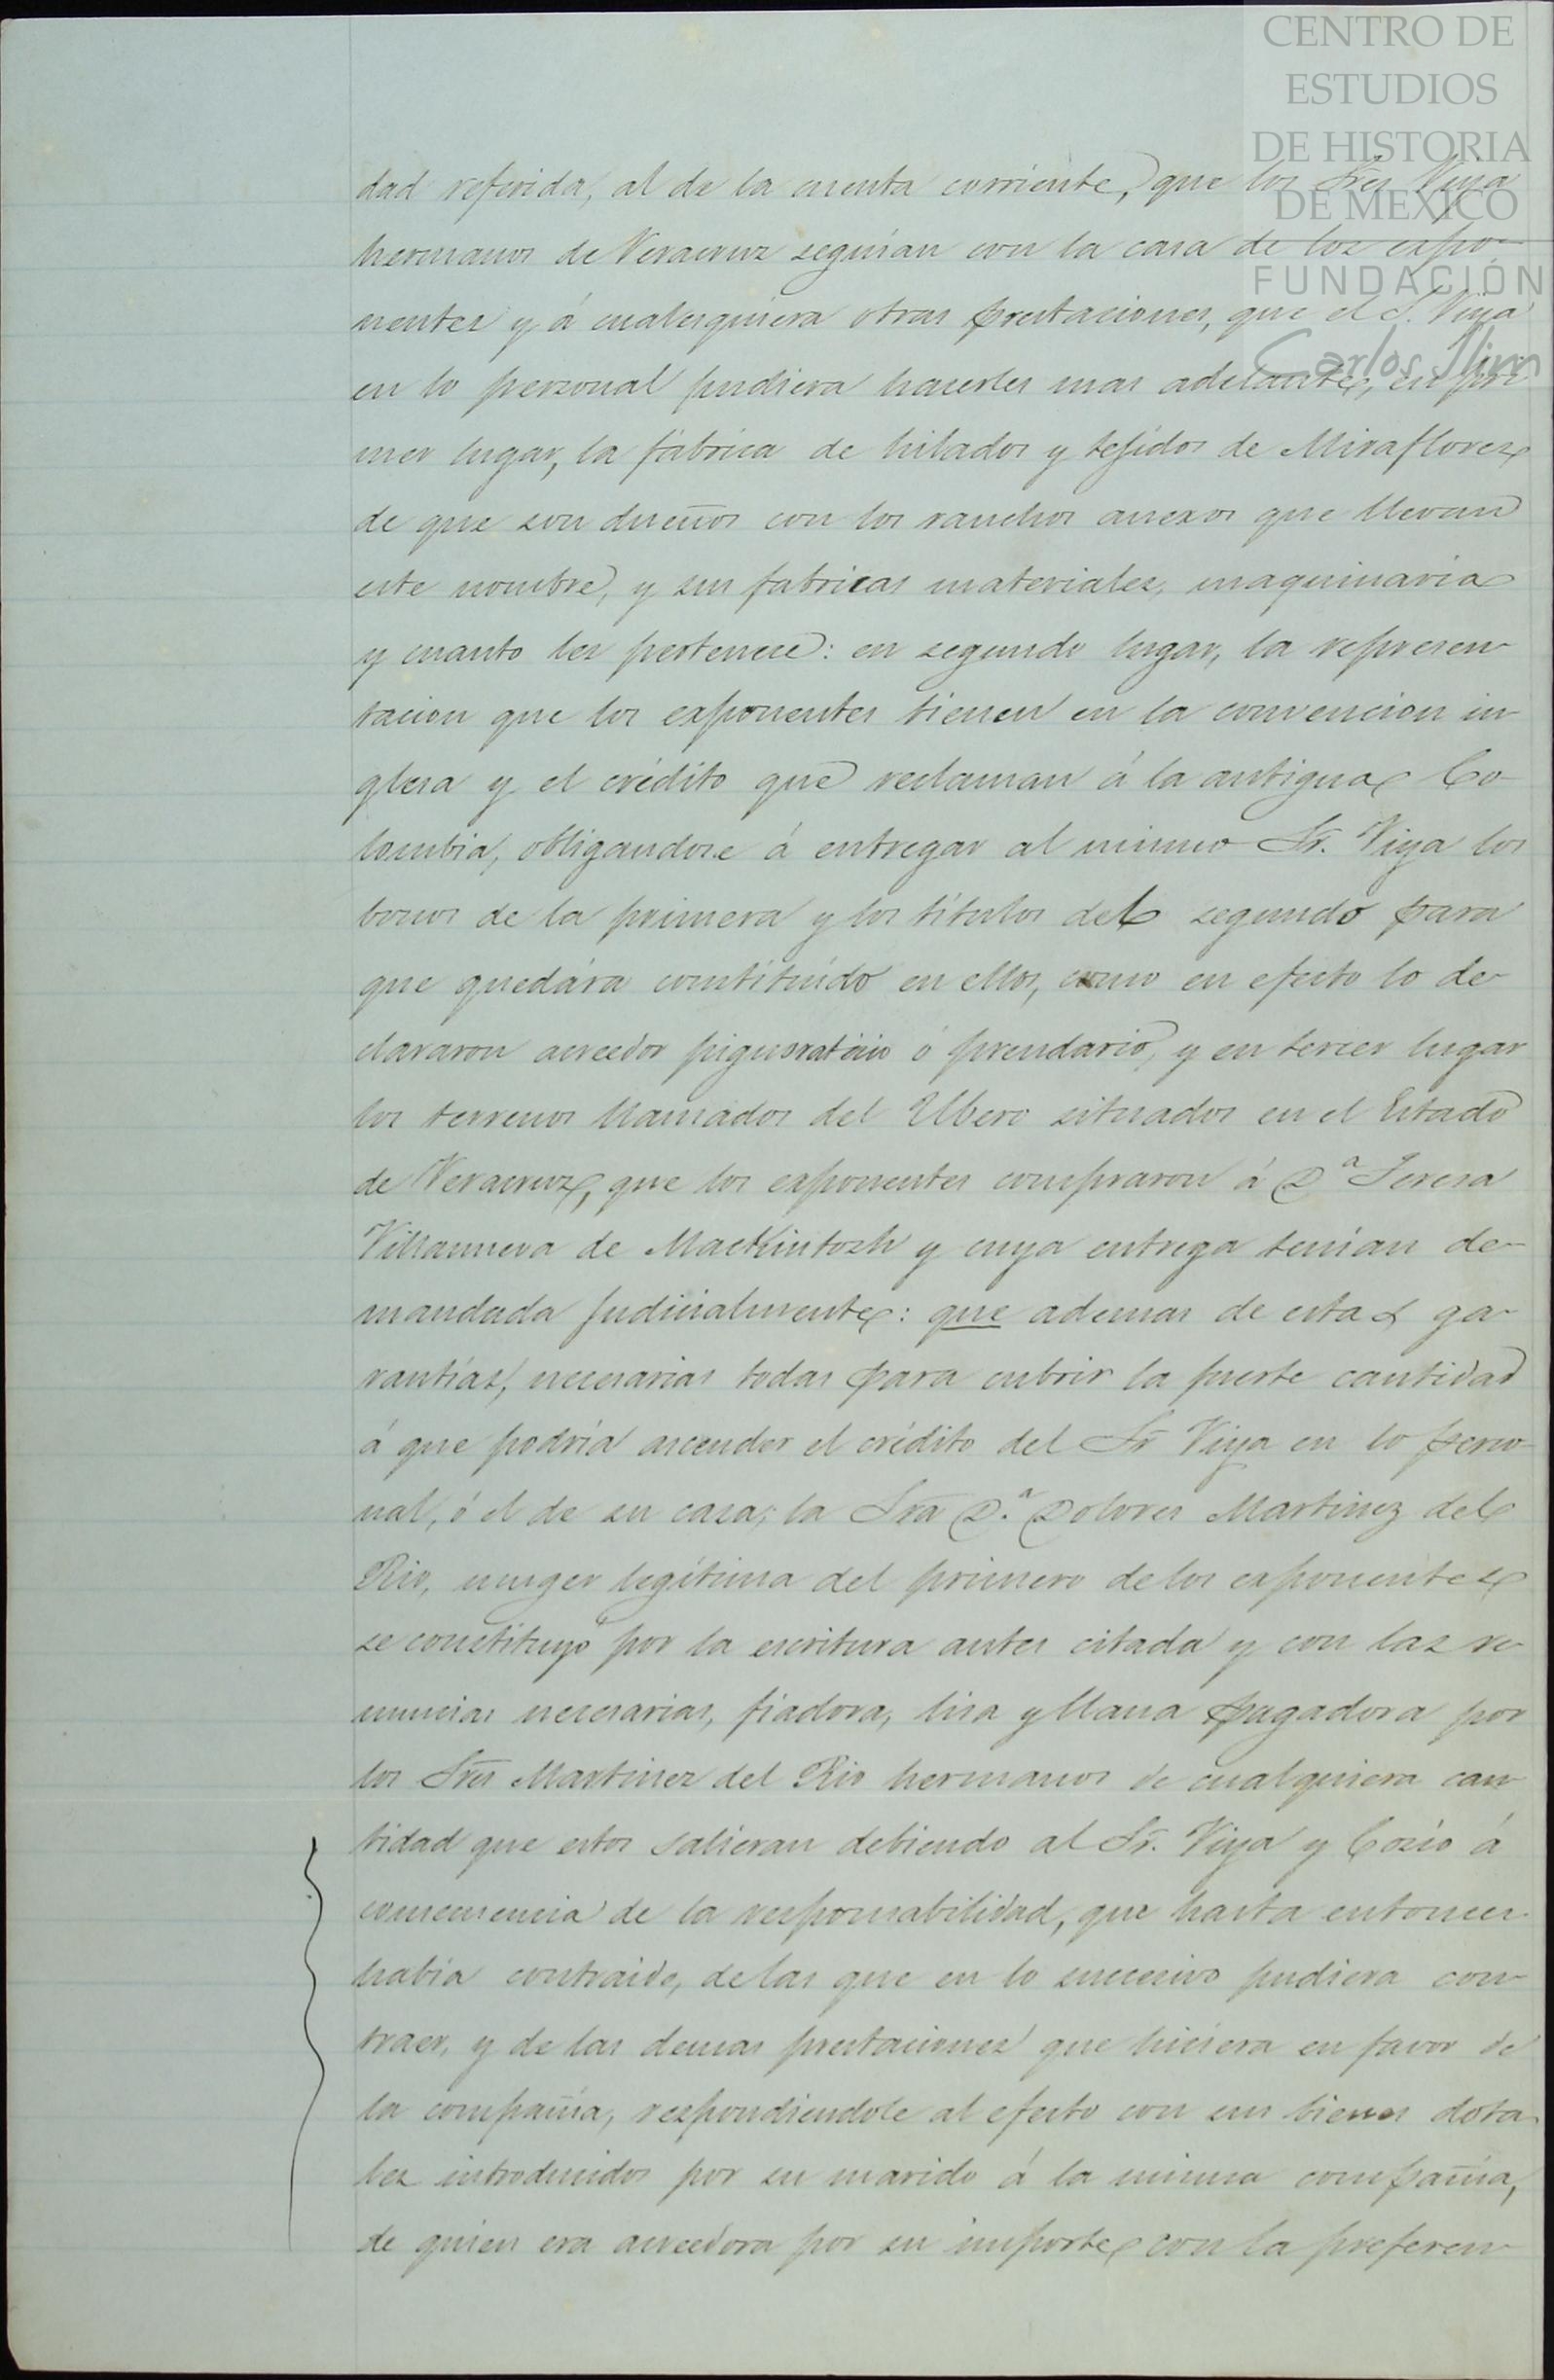 CENTRO DE
ESTUDIOS
DE HISTORIA
DE MEXICO
FUNDACIÓN
Carlos Slim
dad referida, al de la cuenta corriente, que los Sres Viya
hermanos de Veracruz seguian con la casa de los expo-
nentes y á cualesquiera otras prestaciones, que el S. Viya
en lo personal pudiera hacerles mas adelante, en pri
mer lugar, la fábrica de hilados y tejidos de Miraflores
de que son dueños con los ranchos anexos que llevan
este nombre, y sus fabricas materiales, maquinaria
y cuanto les pertenece: en segundo lugar, la represen
tacion que los exponentes tienen en la convencion in
glesa y el crédito que reclaman á la antigua Co
lombia, obligandose á entregar al mismo Sr. Viya los
bonos de la primera y los títulos del segundo para
que quedára constituido en ellos, como en efecto lo de
clararon acreedor pignoraticio ó prendario, y en tercer lugar
los terrenos llamados del Ubero situados en el Estado
de Veracruz, que los exponentes compraron á Dª Teresa
Villanueva de MacKintosh y cuya entrega tenian de-
mandada judicialmente: que ademas de estas ga-
rantías, necesarias todas para cubrir la fuerte cantidad
á que podría ascender el crédito del Sr Viya en lo perso
nal, ó el de su casa; la Sra Dª. Dolores Martinez del
Rio, muger legítima del primero de los exponentes
se constituyó por la escritura antes citada y con las re
nuncias necesarias, fiadora, lisa y llana pagadora por
los Sres Martinez del Rio hermanos de cualquiera can
tidad que estos salieran debiendo al Sr. Viya y Cosio á
consecuencia de la responsabilidad, que hasta entonces
habia contraido, de las que en lo sucesivo pudiera con
traer, y de las demas prestaciones que hiciera en favor de
la compañia, respondiendole al efecto con sus bienes dota
les introducidos por su marido á la misma compañia,
de quien era acreedora por su importe con la preferen